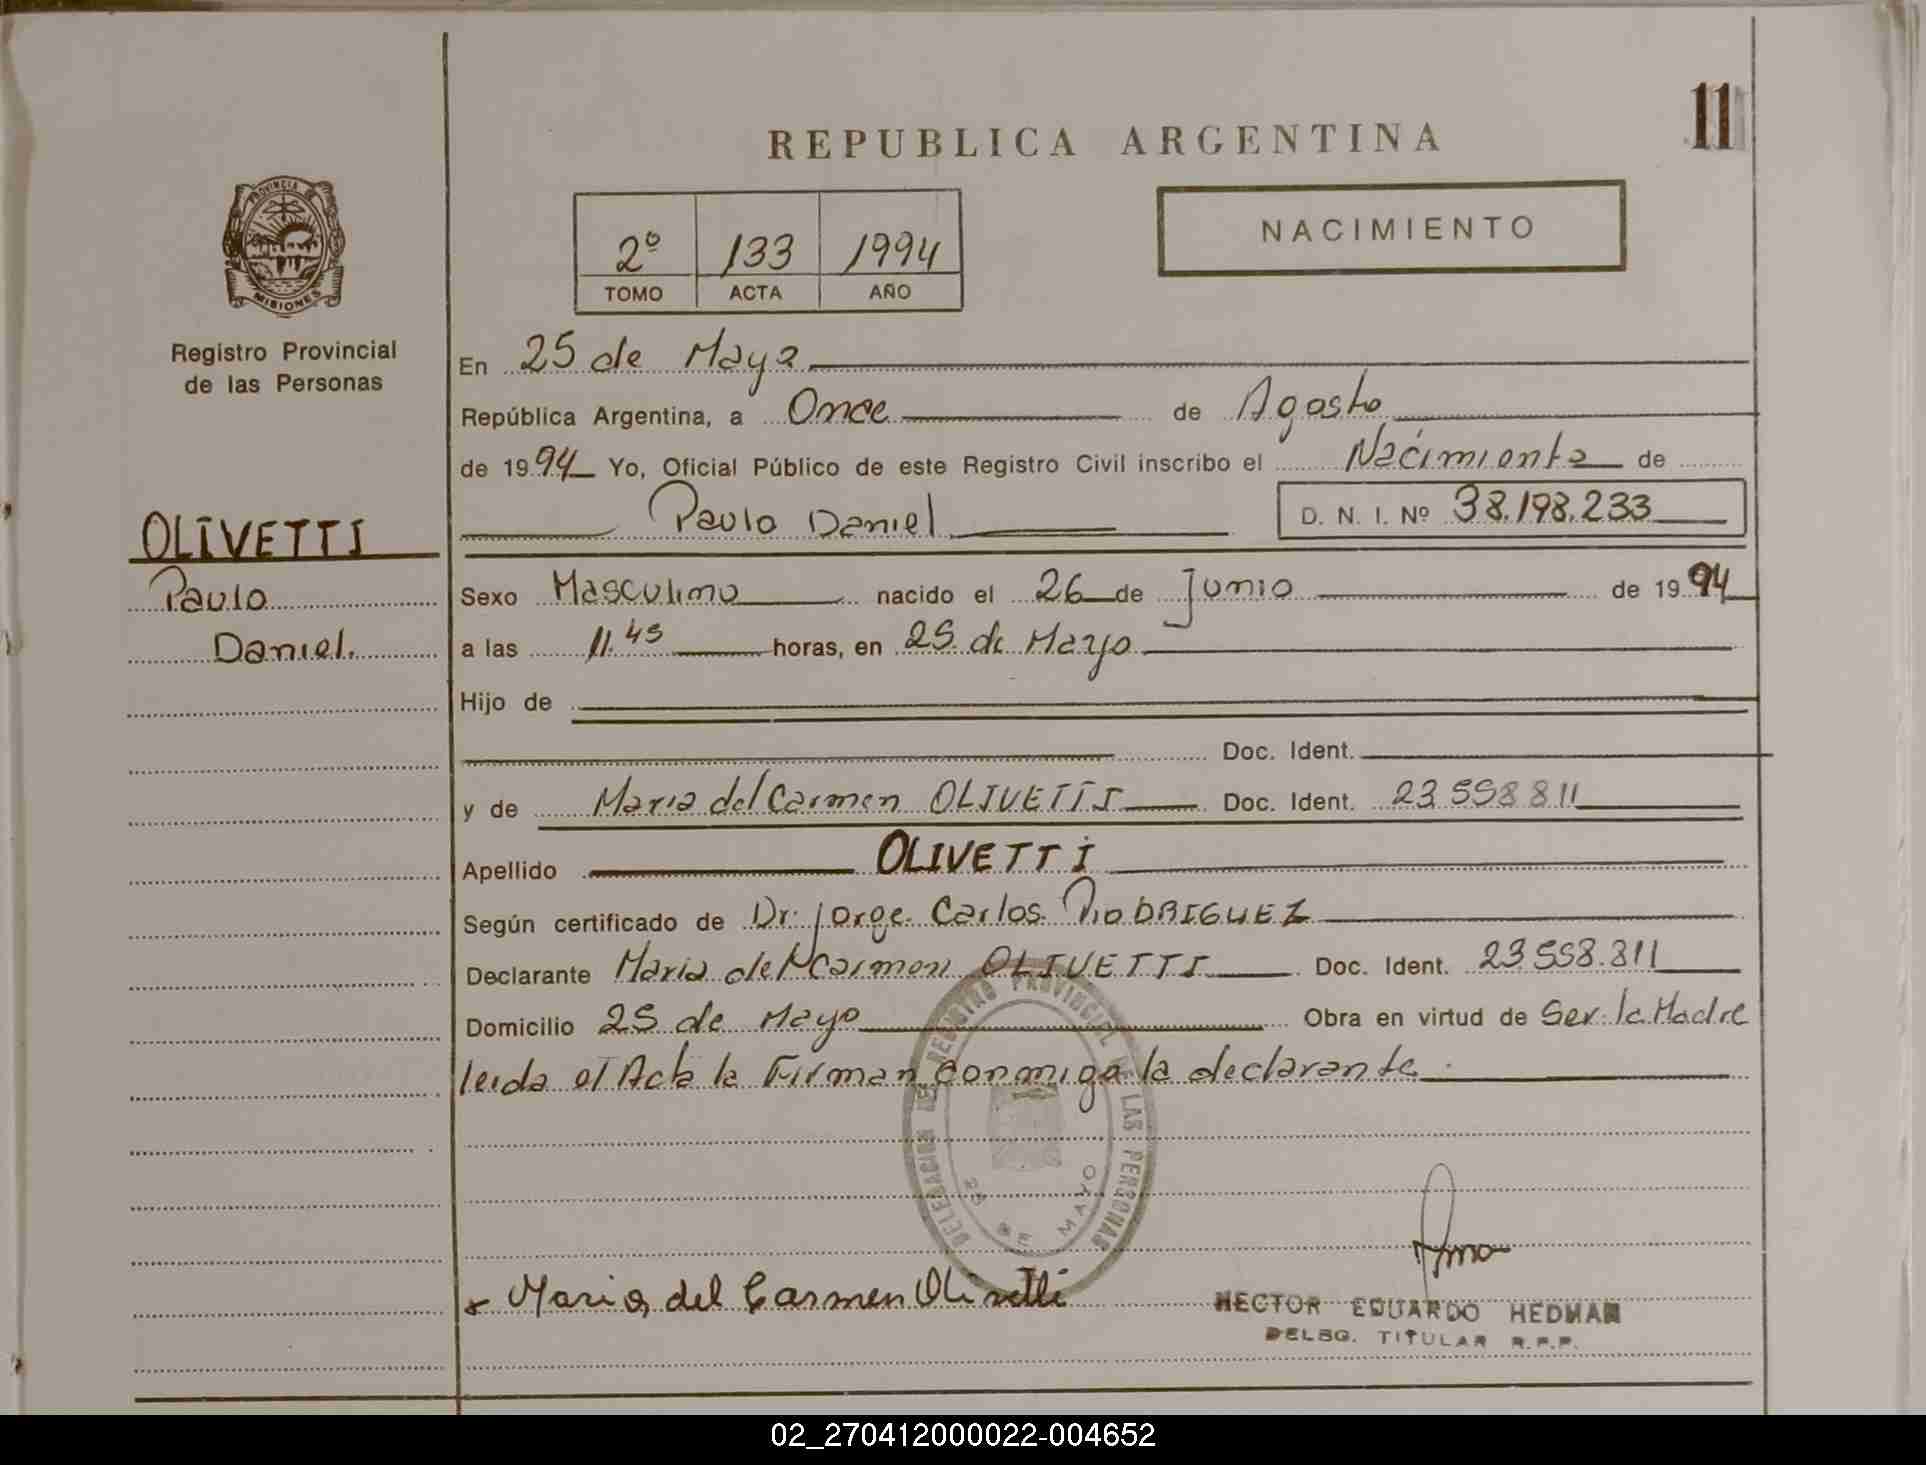 11
REPUBLICA ARGENTINA
PROVINCIA DE
MISIONES
2º 133 1994
TOMO ACTA AÑO
NACIMIENTO
Registro Provincial
de las Personas
En 25 de Mayo
República Argentina, a Once de Agosto
de 1994 Yo, Oficial Público de este Registro Civil inscribo el Nacimiento de
Paulo Daniel D. N. I. Nº 38.198.233
OLIVETTI
Paulo
Daniel.
Sexo Masculino nacido el 26 de Junio de 1994
a las 11.45 horas, en 25 de Mayo
Hijo de
Doc. Ident.
y de Maria del Carmen OLIVETTI Doc. Ident. 23 558 811
Apellido OLIVETTI
Según certificado de Dr. Jorge Carlos RODRIGUEZ
Declarante Maria del Carmen OLIVETTI Doc. Ident. 23.558.811
Domicilio 25 de Mayo Obra en virtud de Ser la Madre
leida el Acta la Firman conmigo la declarante.
DELEGACION DEL REGISTRO PROVINCIAL DE LAS PERSONAS
25 DE MAYO
x Maria del Carmen Olivetti
HECTOR EDUARDO HEDMAN
DELEG. TITULAR R.P.P.
02_270412000022-004652